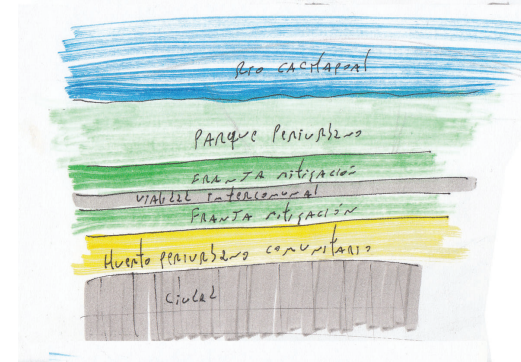 RIO CACHAPOAL
PARQUE PERIURBANO
FRANJA mitigación
VIALIDAD INTERCOMUNAL
FRANJA mitigación
HUERTO PERIURBANO COMUNITARIO
CIUDAD